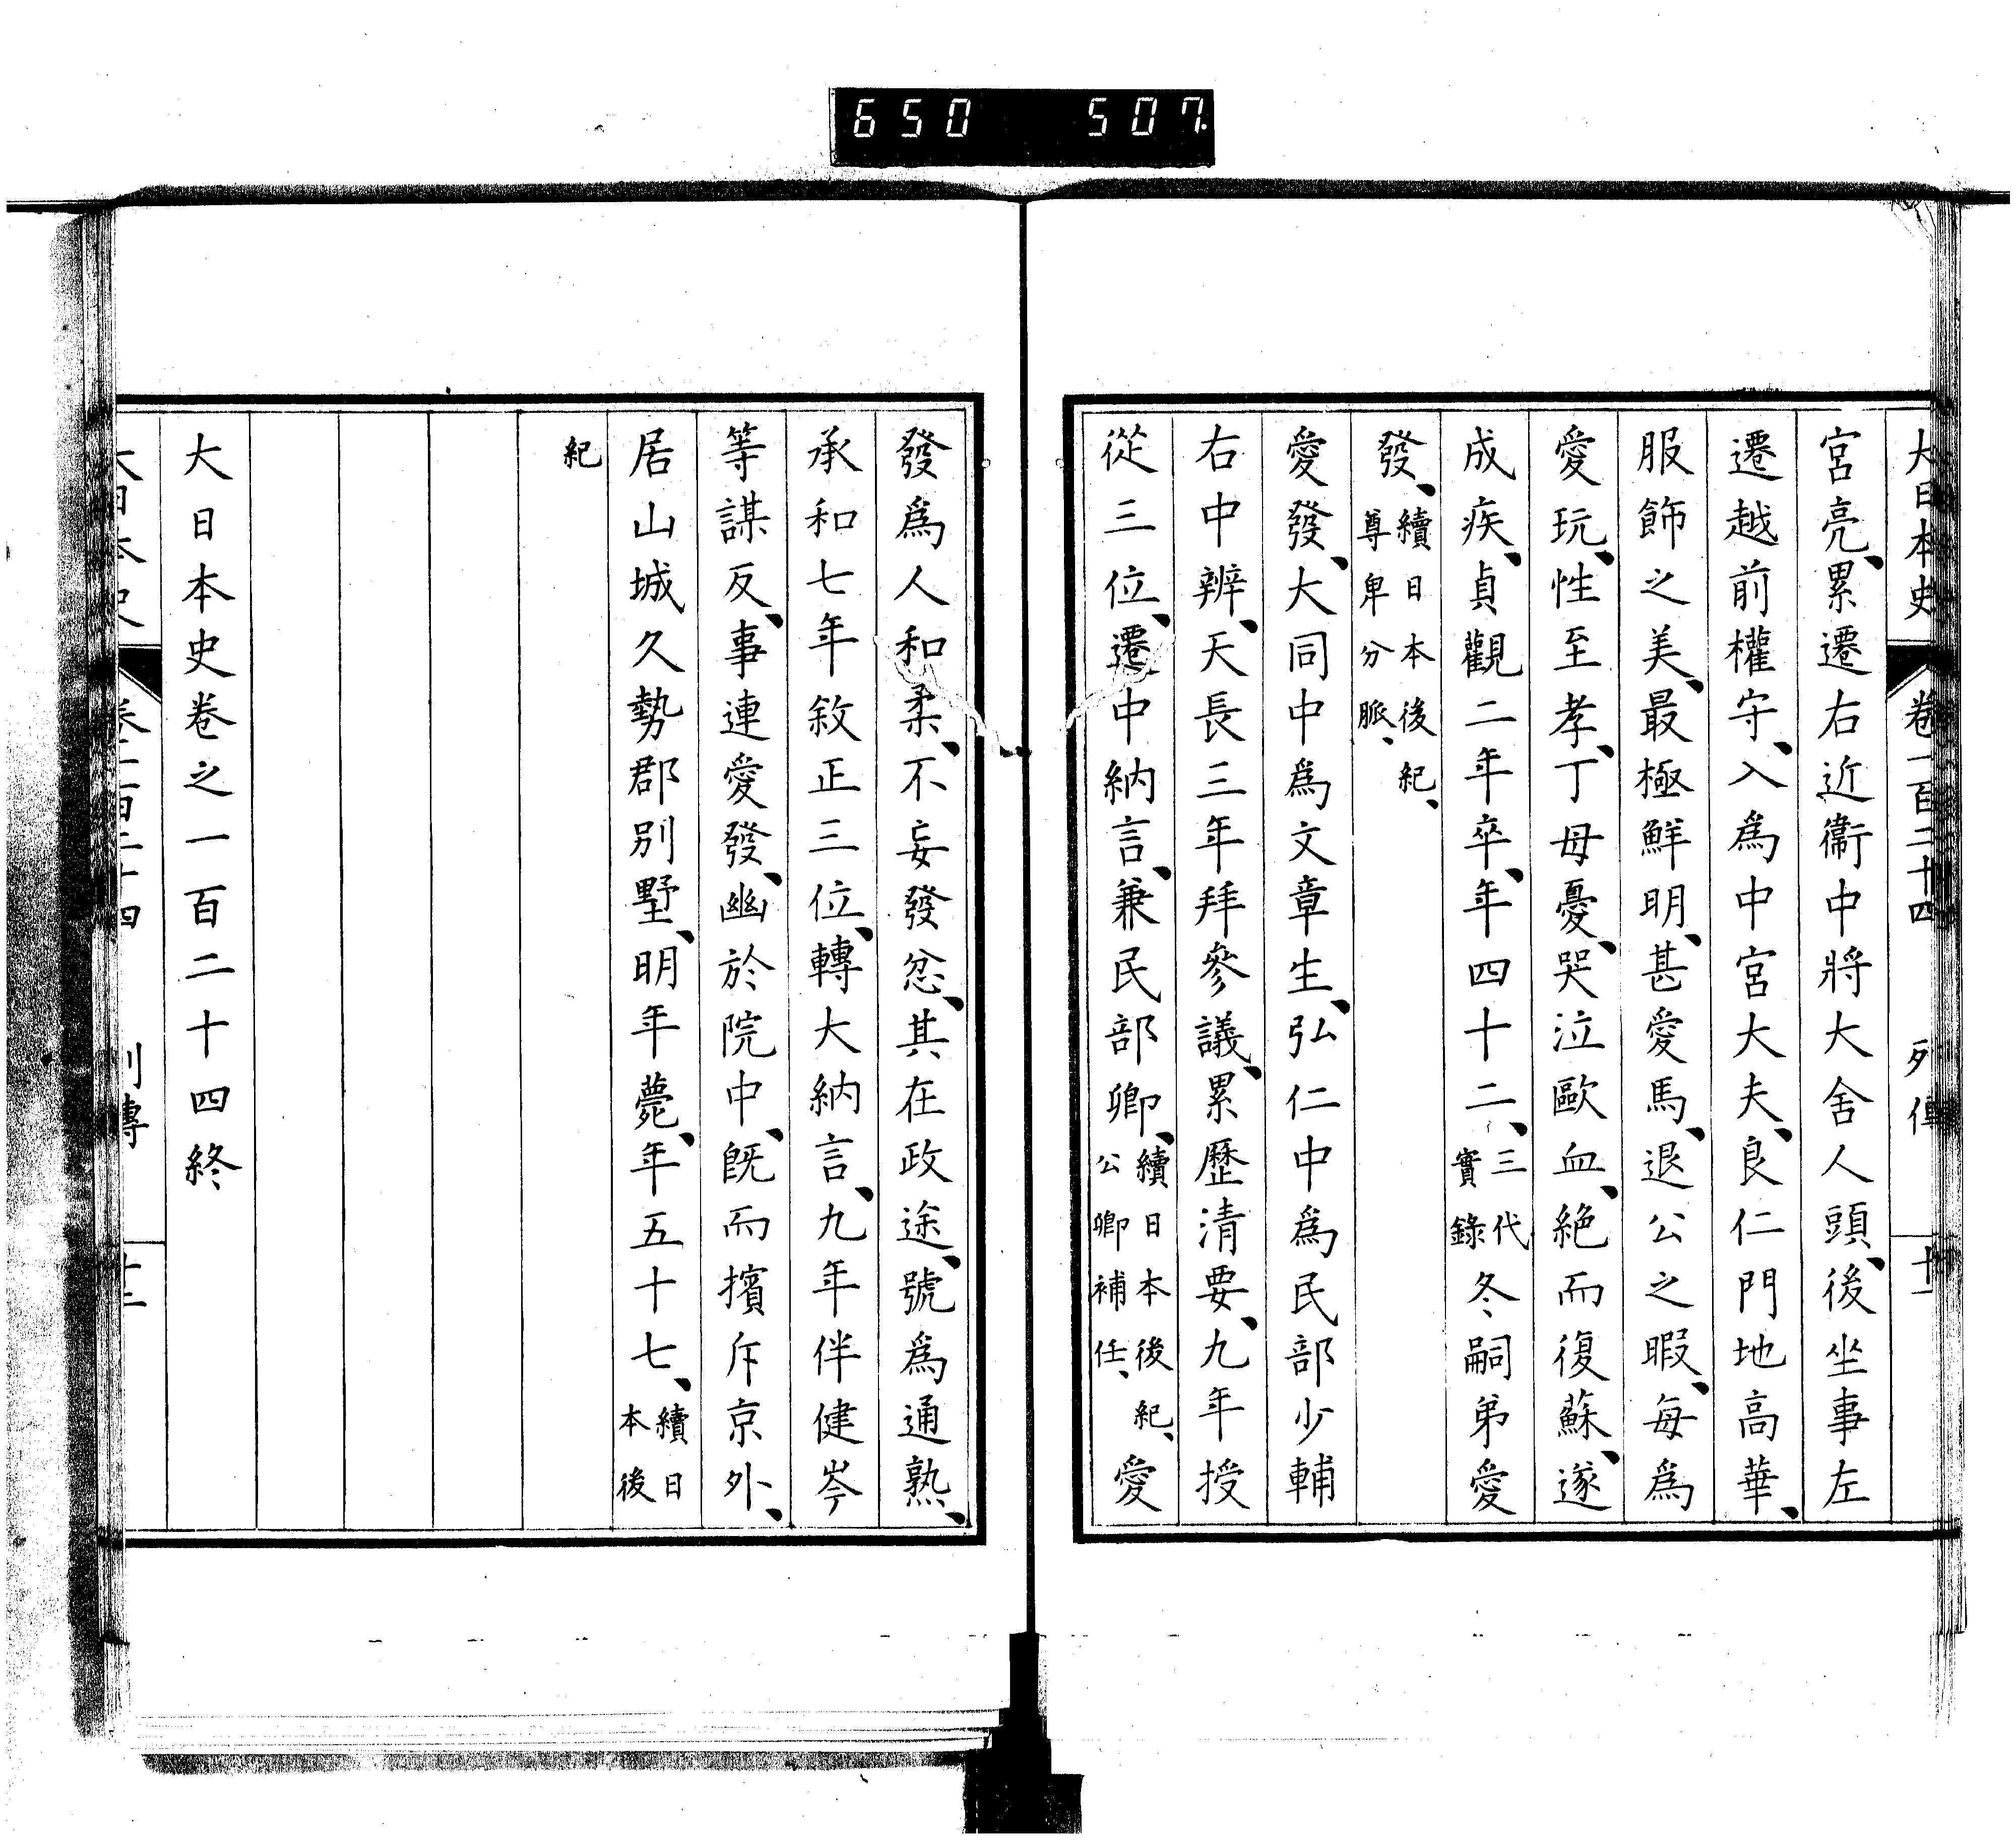 650 507
大日本史 卷一百二十四 列傳 十
宮亮、累遷右近衞中將大舍人頭、後坐事左
遷越前權守、入爲中宮大夫、良仁門地高華、
服飾之美、最極鮮明、甚愛馬、退公之暇、每爲
愛玩、性至孝、丁母憂、哭泣歐血、絶而復蘇、遂
成疾、貞觀二年卒、年四十二、三代實錄冬嗣弟愛
發、續日本後紀、尊卑分脈、
愛發、大同中爲文章生、弘仁中爲民部少輔
右中辨、天長三年拜參議、累歷清要、九年授
從三位、遷中納言、兼民部卿、續日本後紀、公卿補任、愛
發爲人和柔、不妄發忿、其在政途、號爲通熟、
承和七年敘正三位、轉大納言、九年伴健岑
等謀反、事連愛發、幽於院中、既而擯斥京外、
居山城久勢郡別墅、明年薨、年五十七、續日本後
紀
大日本史卷之一百二十四終
大日本史 卷一百二十四 列傳